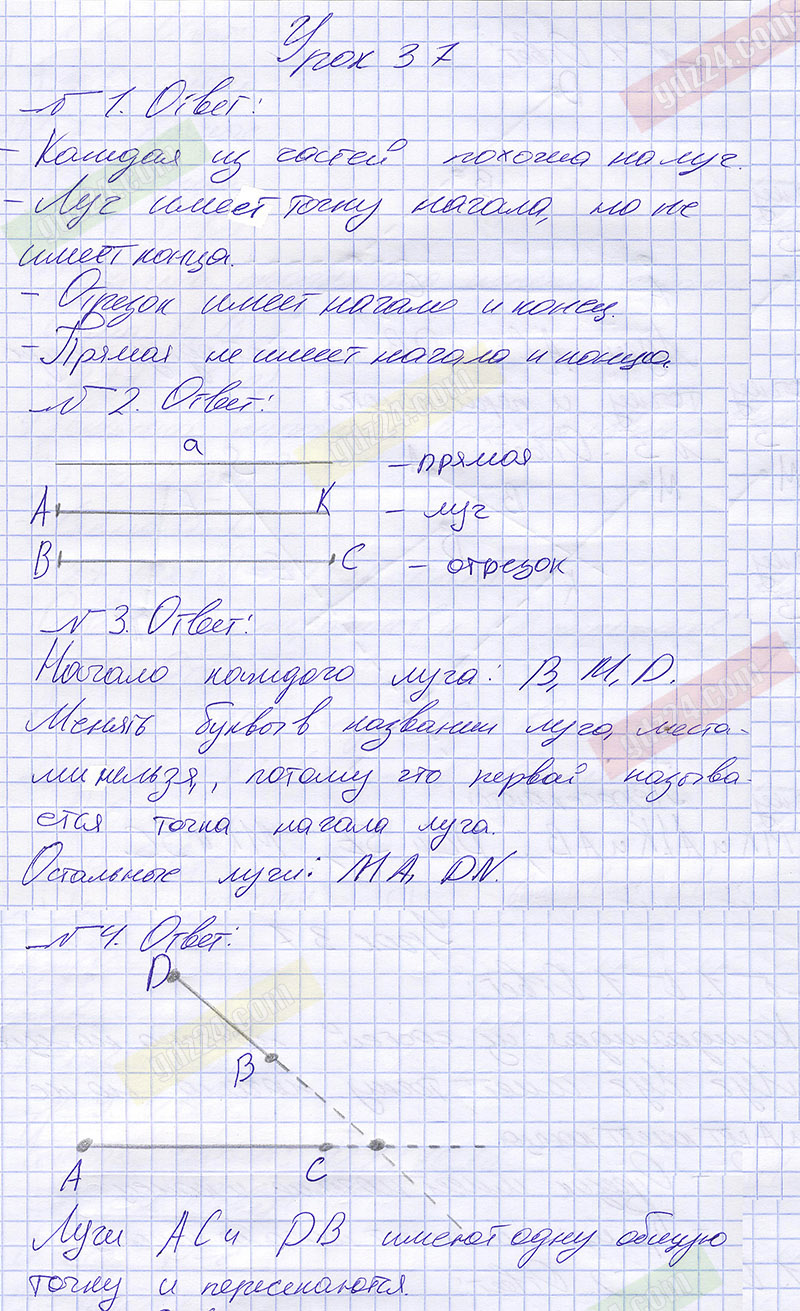 Урок 37
№ 1. Ответ:
- Каждая из частей похожа на луч.
- Луч имеет точку начала, но не
имеет конца.
- Отрезок имеет начало и конец.
- Прямая не имеет начала и конца.
№ 2. Ответ:
a
- прямая
A K - луч
B C - отрезок
№ 3. Ответ:
Начало каждого луча: B, M, D.
Менять буквы в названии луча, места-
ми нельзя, потому что первой называ-
ется точка начала луча.
Остальные лучи: MA, DN.
№ 4. Ответ:
D
B
A C
Лучи AC и DB имеют одну общую
точку и пересекаются.
gdz24.com
gdz24.com
gdz24.com
gdz24.com